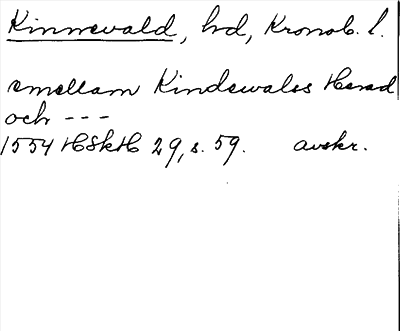 Kinnevald, hd, Kronob. l.
emellam Kindewalss Herad
och ---
1554 HSkH 29, s. 59. avskr.